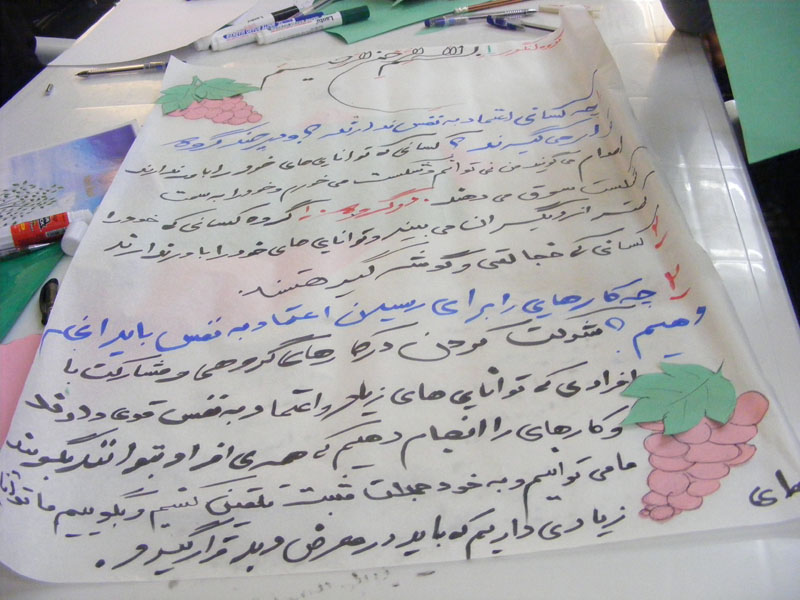 بسم الله الرحمن الرحیم
چه کسانی اعتماد به نفس ندارند؟ و در چند گروه
قرار می گیرند؟ کسانی که توانایی های خود را باور ندارند
اقدام می گویند من نمی توانم و شکست می خورم و خود را به سمت
شکست سوق می دهند. دو گروه: 1 گروه کسانی که خود را
کمتر از دیگران می بیند و توانایی های خود را باور ندارند
2 کسانی که خجالتی و گوشه گیر هستند.
2 چه کارهایی را برای رسیدن اعتماد به نفس باید انجام
دهیم؟ شرکت کردن در کارهای گروهی و مشارکت با
افرادی که توانایی های زیاد و اعتماد به نفس قوی دارند
و کارهای را انجام دهیم که همه ی افراد بتوانند بگویند
ما می توانیم و به خود جملات مثبت تلقین کنیم و بگوییم ما توانا
های
زیادی داریم که باید در معرض دید قرار گیرد.
Lantu